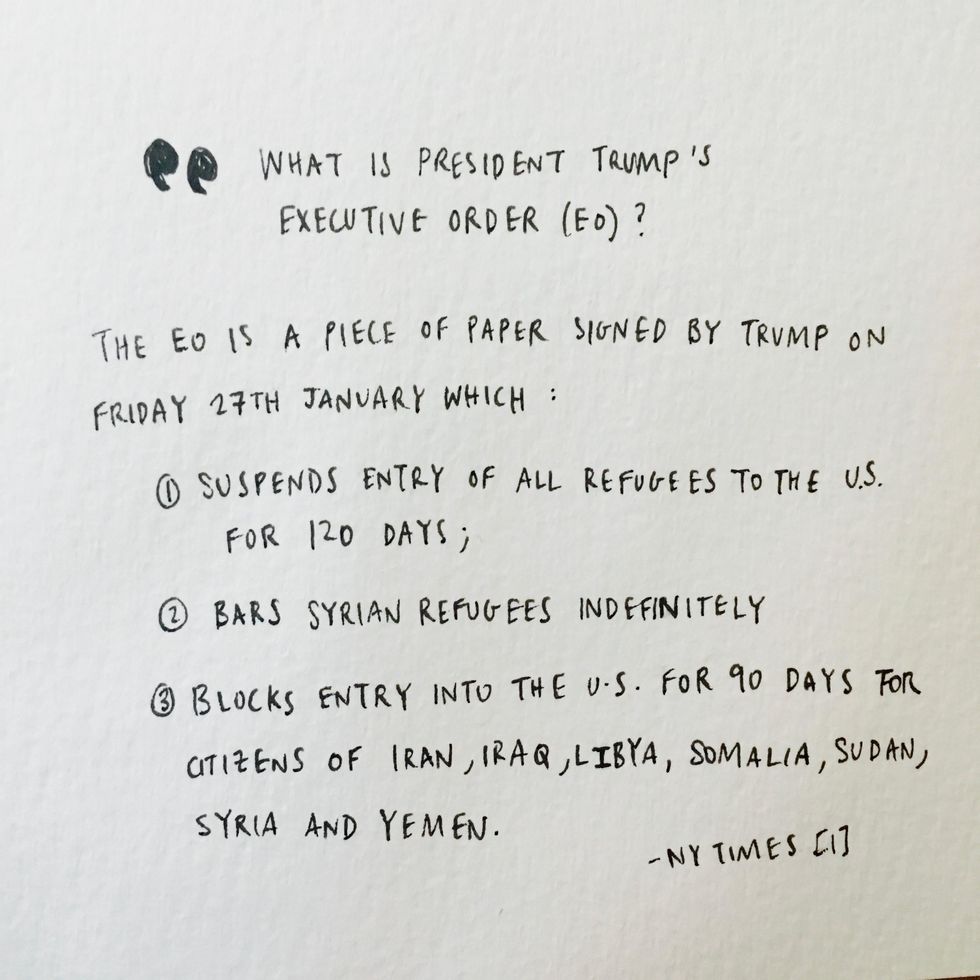 WHAT IS PRESIDENT TRUMP'S
EXECUTIVE ORDER (EO) ?
THE EO IS A PIECE OF PAPER SIGNED BY TRUMP ON
FRIDAY 27TH JANUARY WHICH :
① SUSPENDS ENTRY OF ALL REFUGEES TO THE U.S.
FOR 120 DAYS ;
② BARS SYRIAN REFUGEES INDEFINITELY
③ BLOCKS ENTRY INTO THE U.S. FOR 90 DAYS FOR
CITIZENS OF IRAN, IRAQ, LIBYA, SOMALIA, SUDAN,
SYRIA AND YEMEN.
-NY TIMES [1]